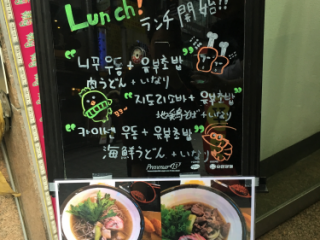 Lunch!
ランチ開始!!
"니꾸우동 + 유부초밥"
肉うどん + いなり
"지도리소바 + 유부초밥"
地鶏そば + いなり
"카이센우동 + 유부초밥"
海鮮うどん + いなり